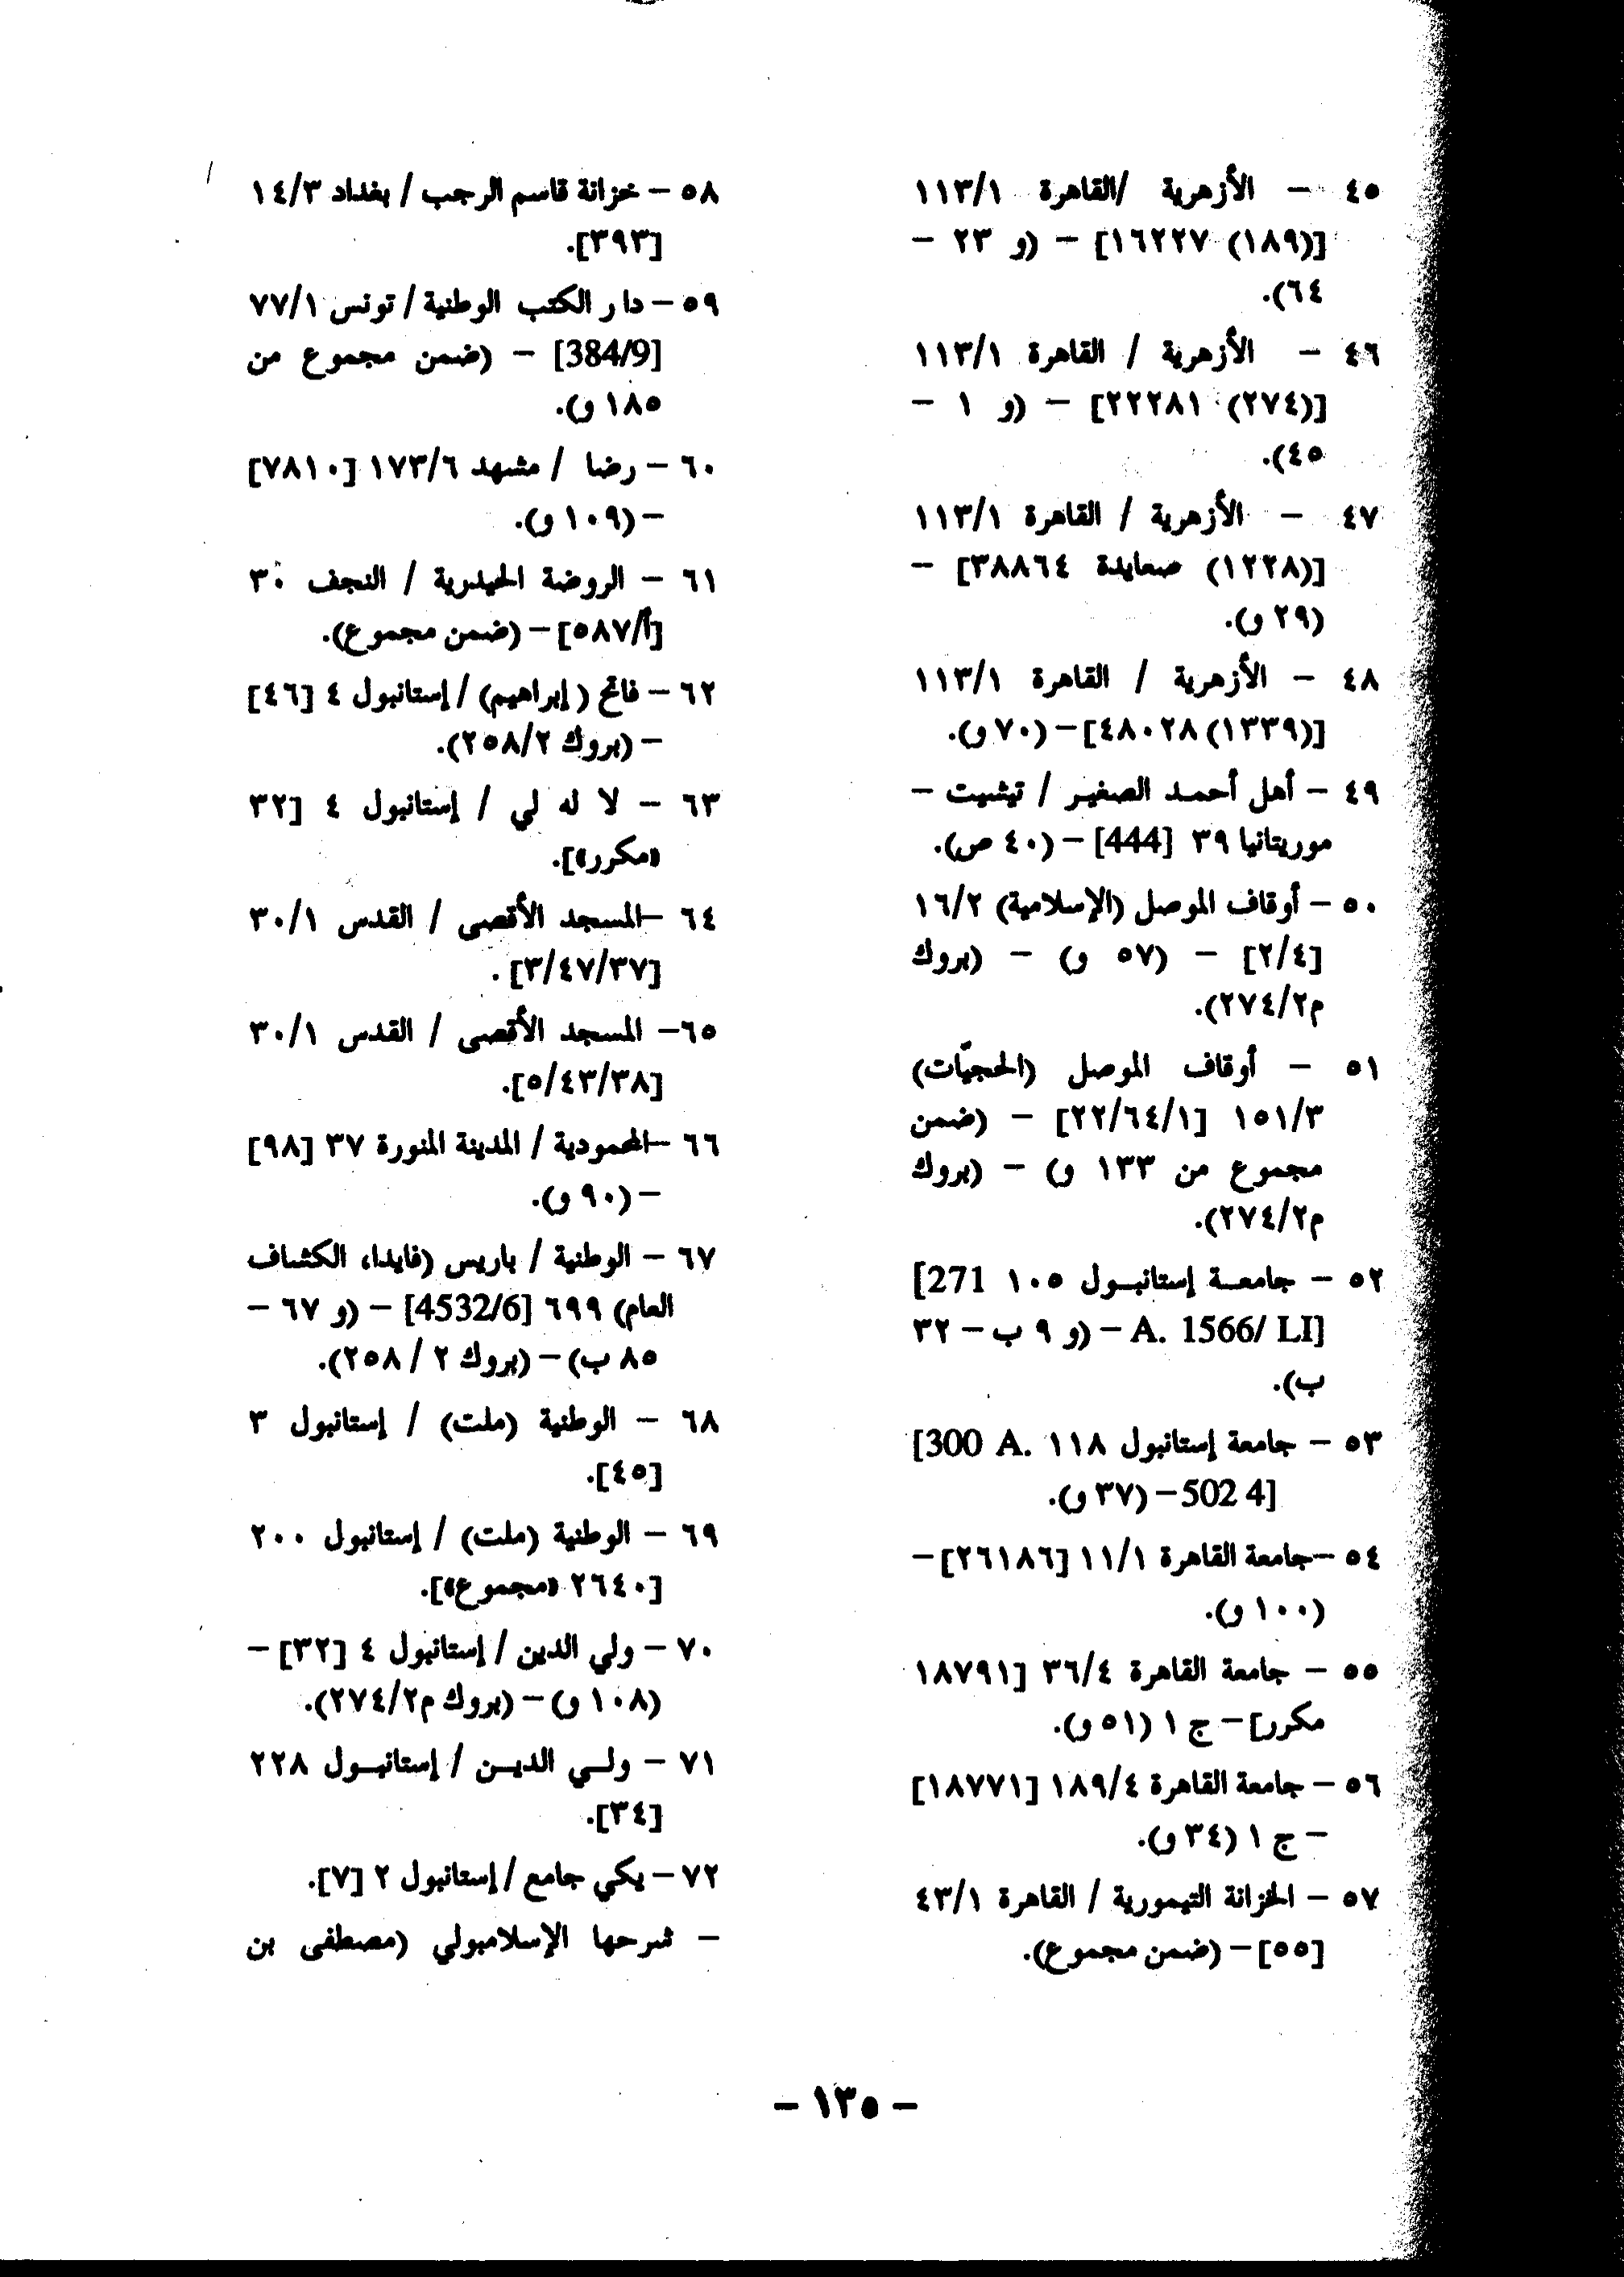 ٤٥ – الأزهرية /القاهرة ١١٣/١
[(١٨٩) ١٦٢٢٧] – (و ٢٣ –
٦٤).
٤٦ – الأزهرية / القاهرة ١١٣/١
[(٢٧٤) ٢٢٢٨١] – (و ١ –
٤٥).
٤٧ – الأزهرية / القاهرة ١١٣/١
[(١٢٢٨) صعايدة ٣٨٨٦٤] –
(٢٩ و).
٤٨ – الأزهرية / القاهرة ١١٣/١
[(١٣٣٩) ٤٨٠٢٨] – (٧٠ و).
٤٩ – أهل أحمد الصغير / تيشيت –
موريتانيا ٣٩ [444] – (٤٠ ص).
٥٠ – أوقاف الموصل (الإسلامية) ١٦/٢
[٢/٤] – (٥٧ و) – (بروك
م٢٧٤/٢).
٥١ – أوقاف الموصل (الحجيّات)
١٥١/٣ [٢٢/٦٤/١] – (ضمن
مجموع من ١٣٣ و) – (بروك
م٢٧٤/٢).
٥٢ – جامعة إستانبول ١٠٥ [271
A. 1566/ LI] – (و ٩ ب – ٣٢
ب).
٥٣ – جامعة إستانبول ١١٨ [300 A.
502 4] – (٣٧ و).
٥٤ –جامعة القاهرة ١١/١ [٢٦١٨٦] –
(١٠٠ و).
٥٥ – جامعة القاهرة ٣٦/٤ [١٨٧٩١
مكرر] – ج ١ (٥١ و).
٥٦ – جامعة القاهرة ١٨٩/٤ [١٨٧٧١]
– ج ١ (٣٤ و).
٥٧ – الخزانة التيمورية / القاهرة ٤٣/١
[٥٥] – (ضمن مجموع).
٥٨ – خزانة قاسم الرجب / بغداد ١٤/٣
[٣٩٣].
٥٩ – دار الكتب الوطنية / تونس ٧٧/١
[384/9] – (ضمن مجموع من
١٨٥ و).
٦٠ – رضا / مشهد ١٧٣/٦ [٧٨١٠]
– (١٠٩ و).
٦١ – الروضة الحيدرية / النجف ٣٠
[أ/٥٨٧] – (ضمن مجموع).
٦٢ – فاتح (إبراهيم) / إستانبول ٤ [٤٦]
– (بروك ٢٥٨/٢).
٦٣ – لا له لي / إستانبول ٤ [٣٢
«مكرر»].
٦٤ –المسجد الأقصى / القدس ٣٠/١
[٣/٤٧/٣٧] .
٦٥– المسجد الأقصى / القدس ٣٠/١
[٥/٤٣/٣٨].
٦٦ –المحمودية / المدينة المنورة ٣٧ [٩٨]
– (٩٠ و).
٦٧ – الوطنية / باريس (فايدا، الكشاف
العام) ٦٩٩ [4532/6] – (و ٦٧ –
٨٥ ب) – (بروك ٢ / ٢٥٨).
٦٨ – الوطنية (ملت) / إستانبول ٣
[٤٥].
٦٩ – الوطنية (ملت) / إستانبول ٢٠٠
[٢٦٤٠ «مجموع»].
٧٠ – ولي الدين / إستانبول ٤ [٣٢] –
(١٠٨ و) – (بروك م٢٧٤/٢).
٧١ – ولي الدين / إستانبول ٢٢٨
[٣٤].
٧٢ – يكي جامع / إستانبول ٢ [٧].
– شرحها الإسلامبولي (مصطفى بن
– ١٣٥ –